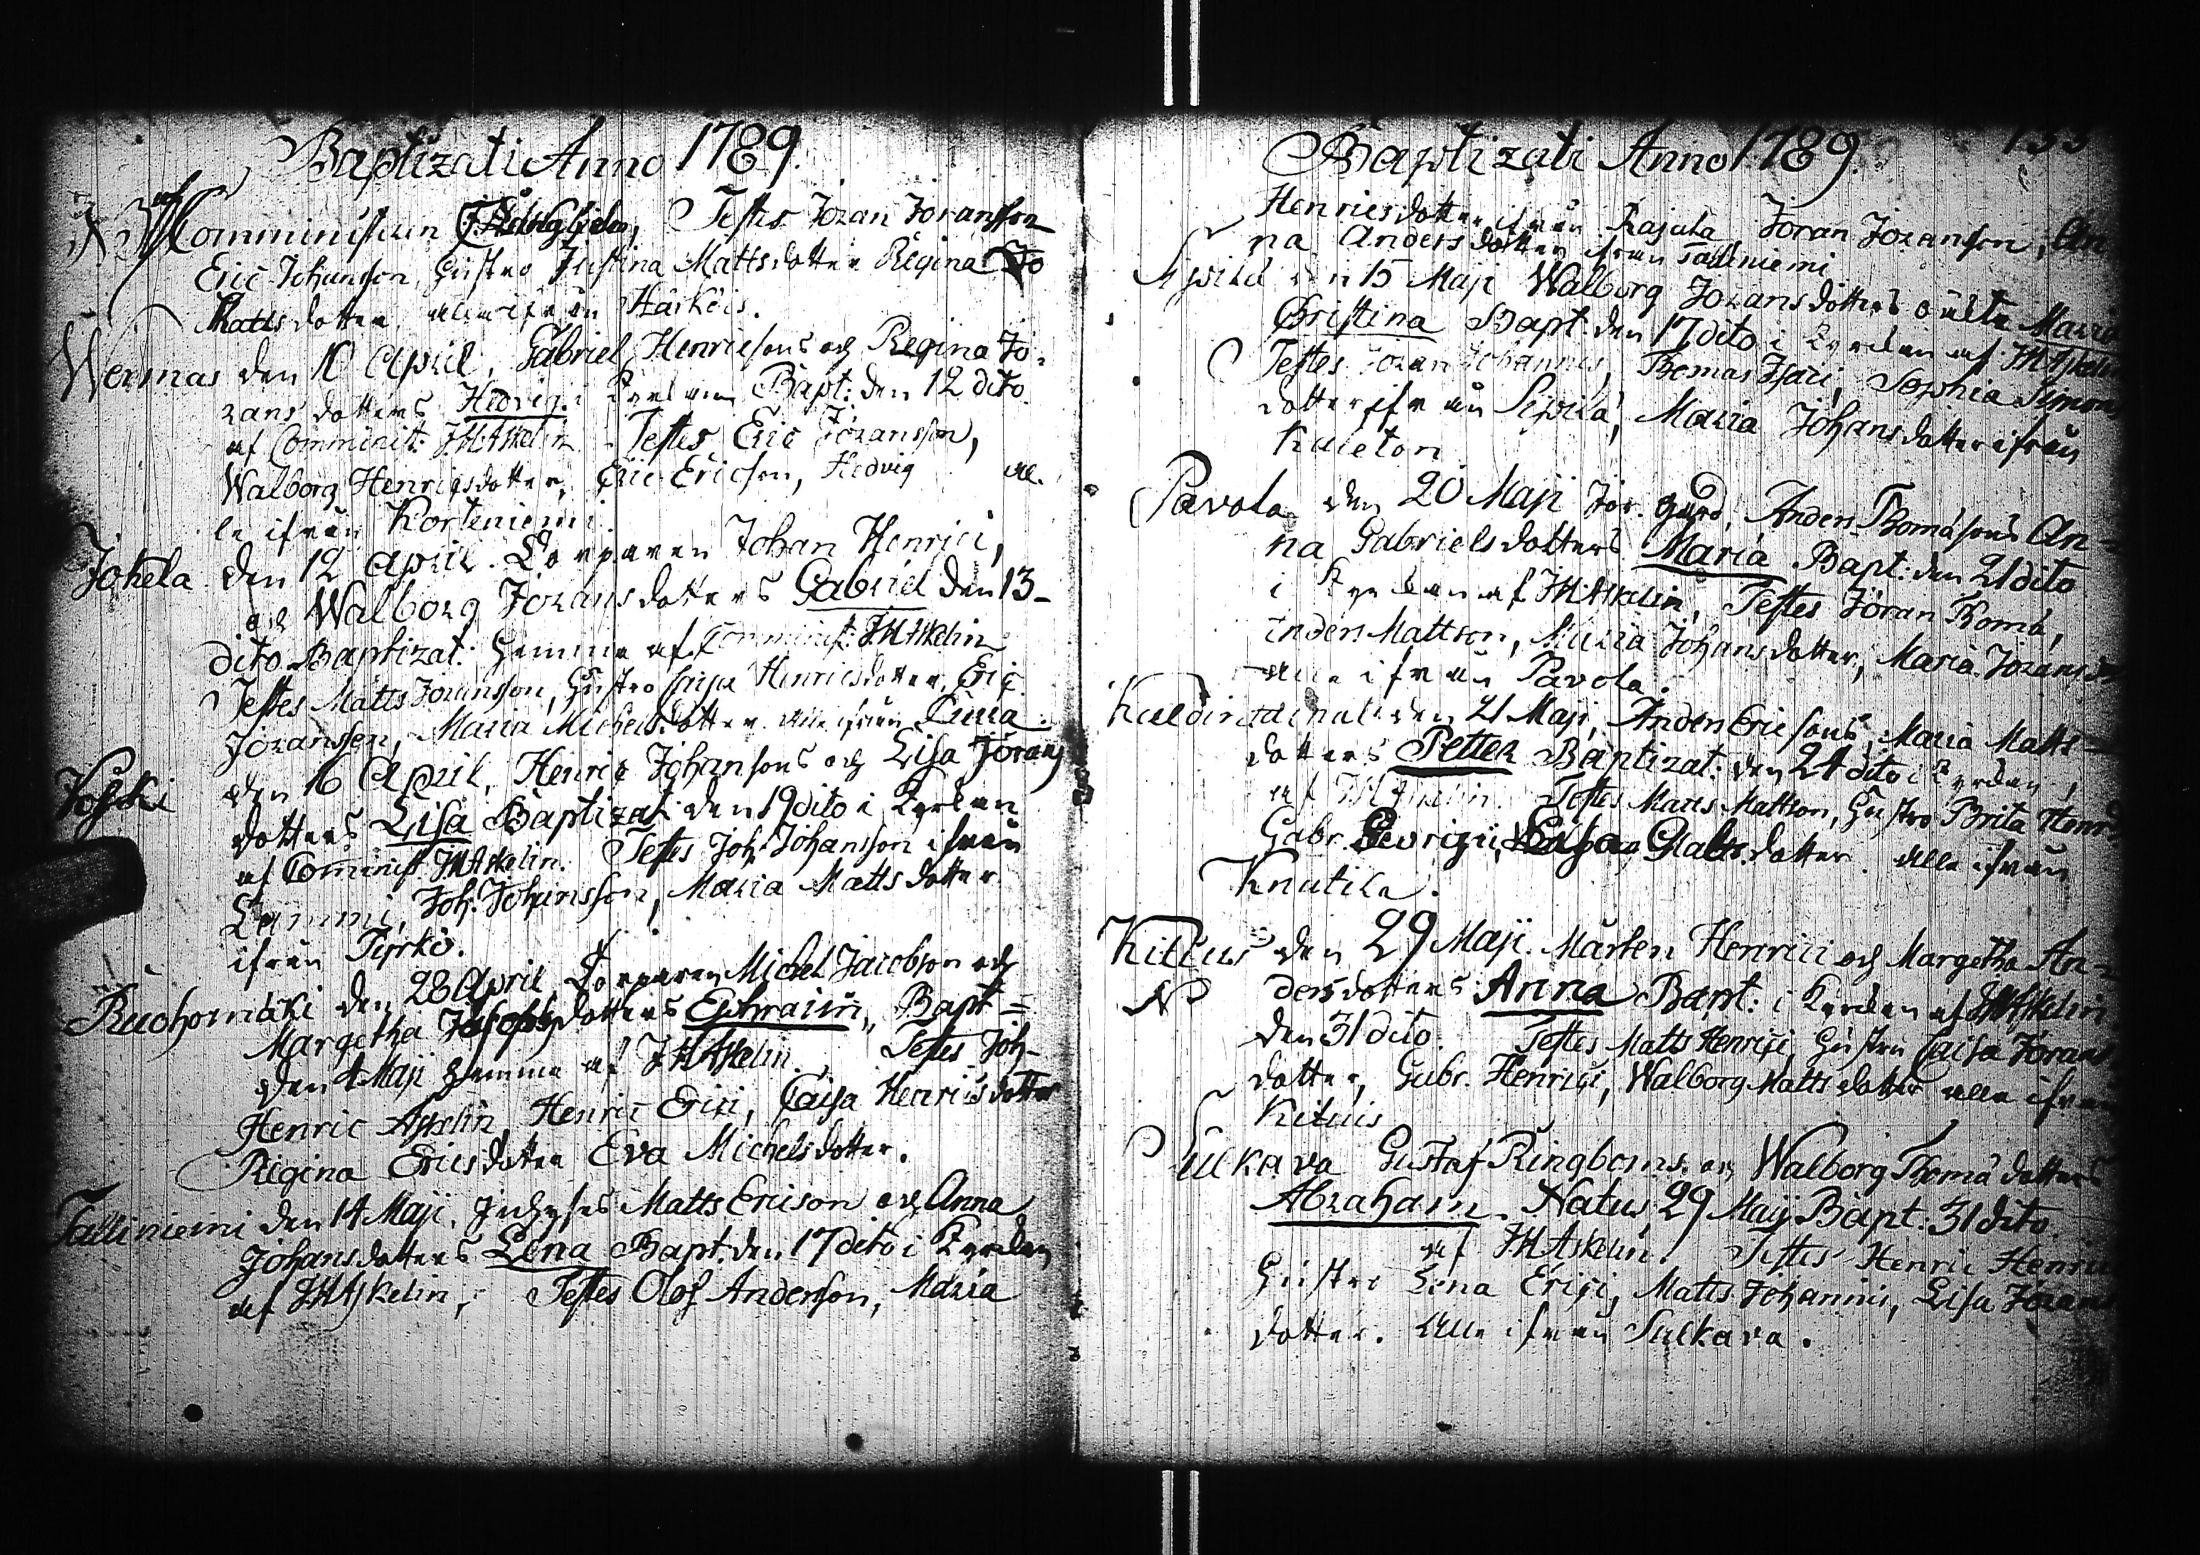 Baptizati Anno 1789.
af Comministern Testes Joran Joransson
Eric Johansson, Hustro Justina Mattsdotter Regina Jo
Mattsdotter alle ifrån Härkeis.
Wermas den 10 April, Gabriel Henricsons och Regina Jo-
ransdotters Hedvig i Kyrkan Bapt: den 12 dito.
af Comminist: JHAskelin Testes Eric Joransson,
Walborg Henricsdotter, Eric Ericson, Hedvig al-
le ifrån Korteniemi.
Jokela den 12 April. Torparen Johan Henrici,
och Walborg Joransdotters Gabriel den 13-
dito Baptizat: hemma af Comminist: JHAskelin
Testes Matts Joransson, Hustro Caisa Henricsdotter, Eric
Joransson, Maria Michelsdotter alle ifrån
Koski den 16 April, Henric Johansons och Lisa Jorans
dotters Lisa Baptizat: den 19 dito i Kyrkan
af Cominist JHAskelin. Testes Joh: Johansson ifrån
Lammi, Joh: Johansson, Maria Mattsdotter
ifrån Tyrkö.
Ruohomäki den 28 April, Torparen Michel Jacobson och
Margetha dotters Ephraim, Bapt =
den 4 Maji hemma af JHAskelin. Testes Joh-
Henric Askelin, Henric Erici, Caisa Henricsdotter
Regina Ericsdotter Eva Michelsdotter.
Talliniemi den 14 Maji. Inhyses Matts Ericson och Anna
Johansdotters Lena Bapt. den 17 dito i Kyrkan
af JHAskelin, Testes Olof Anderson, Maria
Baptizati Anno 1789. 133
Henricsdotter ifrån Rajala Joran Joranson, An
na Andersdotter ifrån Talliniemi
den 15 Maji Walborg Joransdotters oäkta Maria
Christina Bapt: den 17 dito i Kyrkan af JHAskelin
Testes Joran Johannis, Thomas Isaci, Sophia Simons
dotter ifrån Sipilä, Maria Johansdotter ifrån
Kuleton
Pavola den 20 Maji Anders Thomasons An =
na Gabrielsdotters Maria Bapt: den 21 dito
i Kyrkan af JHAskelin, Testes Joran Thoma,
Anders Mattson, Maria Johansdotter, Maria Joransdr
alle ifrån Pavola.
den 21 Maji, Anders Ericsons, Maria Matts =
dotters Petter Baptizat: den 24 dito i Kyrkan,
af JHAskelin. Testes Matts Mattson, Hustro Brita Henrics
Gabr. dotter alle ifrån
Knutila.
Kituis den 29 Maji. Mårten Henrici och Margetha An =
N dersdotters Anna Bapt: i Kyrkan af JHAskelin
den 31 dito. Testes Matts Henrici, Hustru Caisa Jorans
dotter, Gabr. Henrici, Walborg Mattsdotter alle ifrån
Kituis
Sulkava Gustaf Ringboms och Walborg Thomadotters
Abraham. Natus 29 Maij Bapt. 31 dito.
af JHAskelin. Testes Henric Henrici
Hustro Lena Erici, Matts Johannis, Lisa Jorans
dotter. Alle ifrån Sulkava.